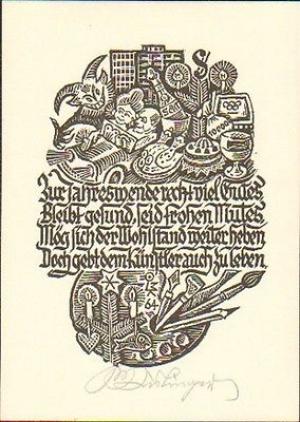 10000
Zur Jahreswende recht viel Gutes
Bleibt gesund, seid frohen Mutes.
Mög sich der Wohlstand weiter heben
Doch gebt dem Künstler auch zu leben.
64